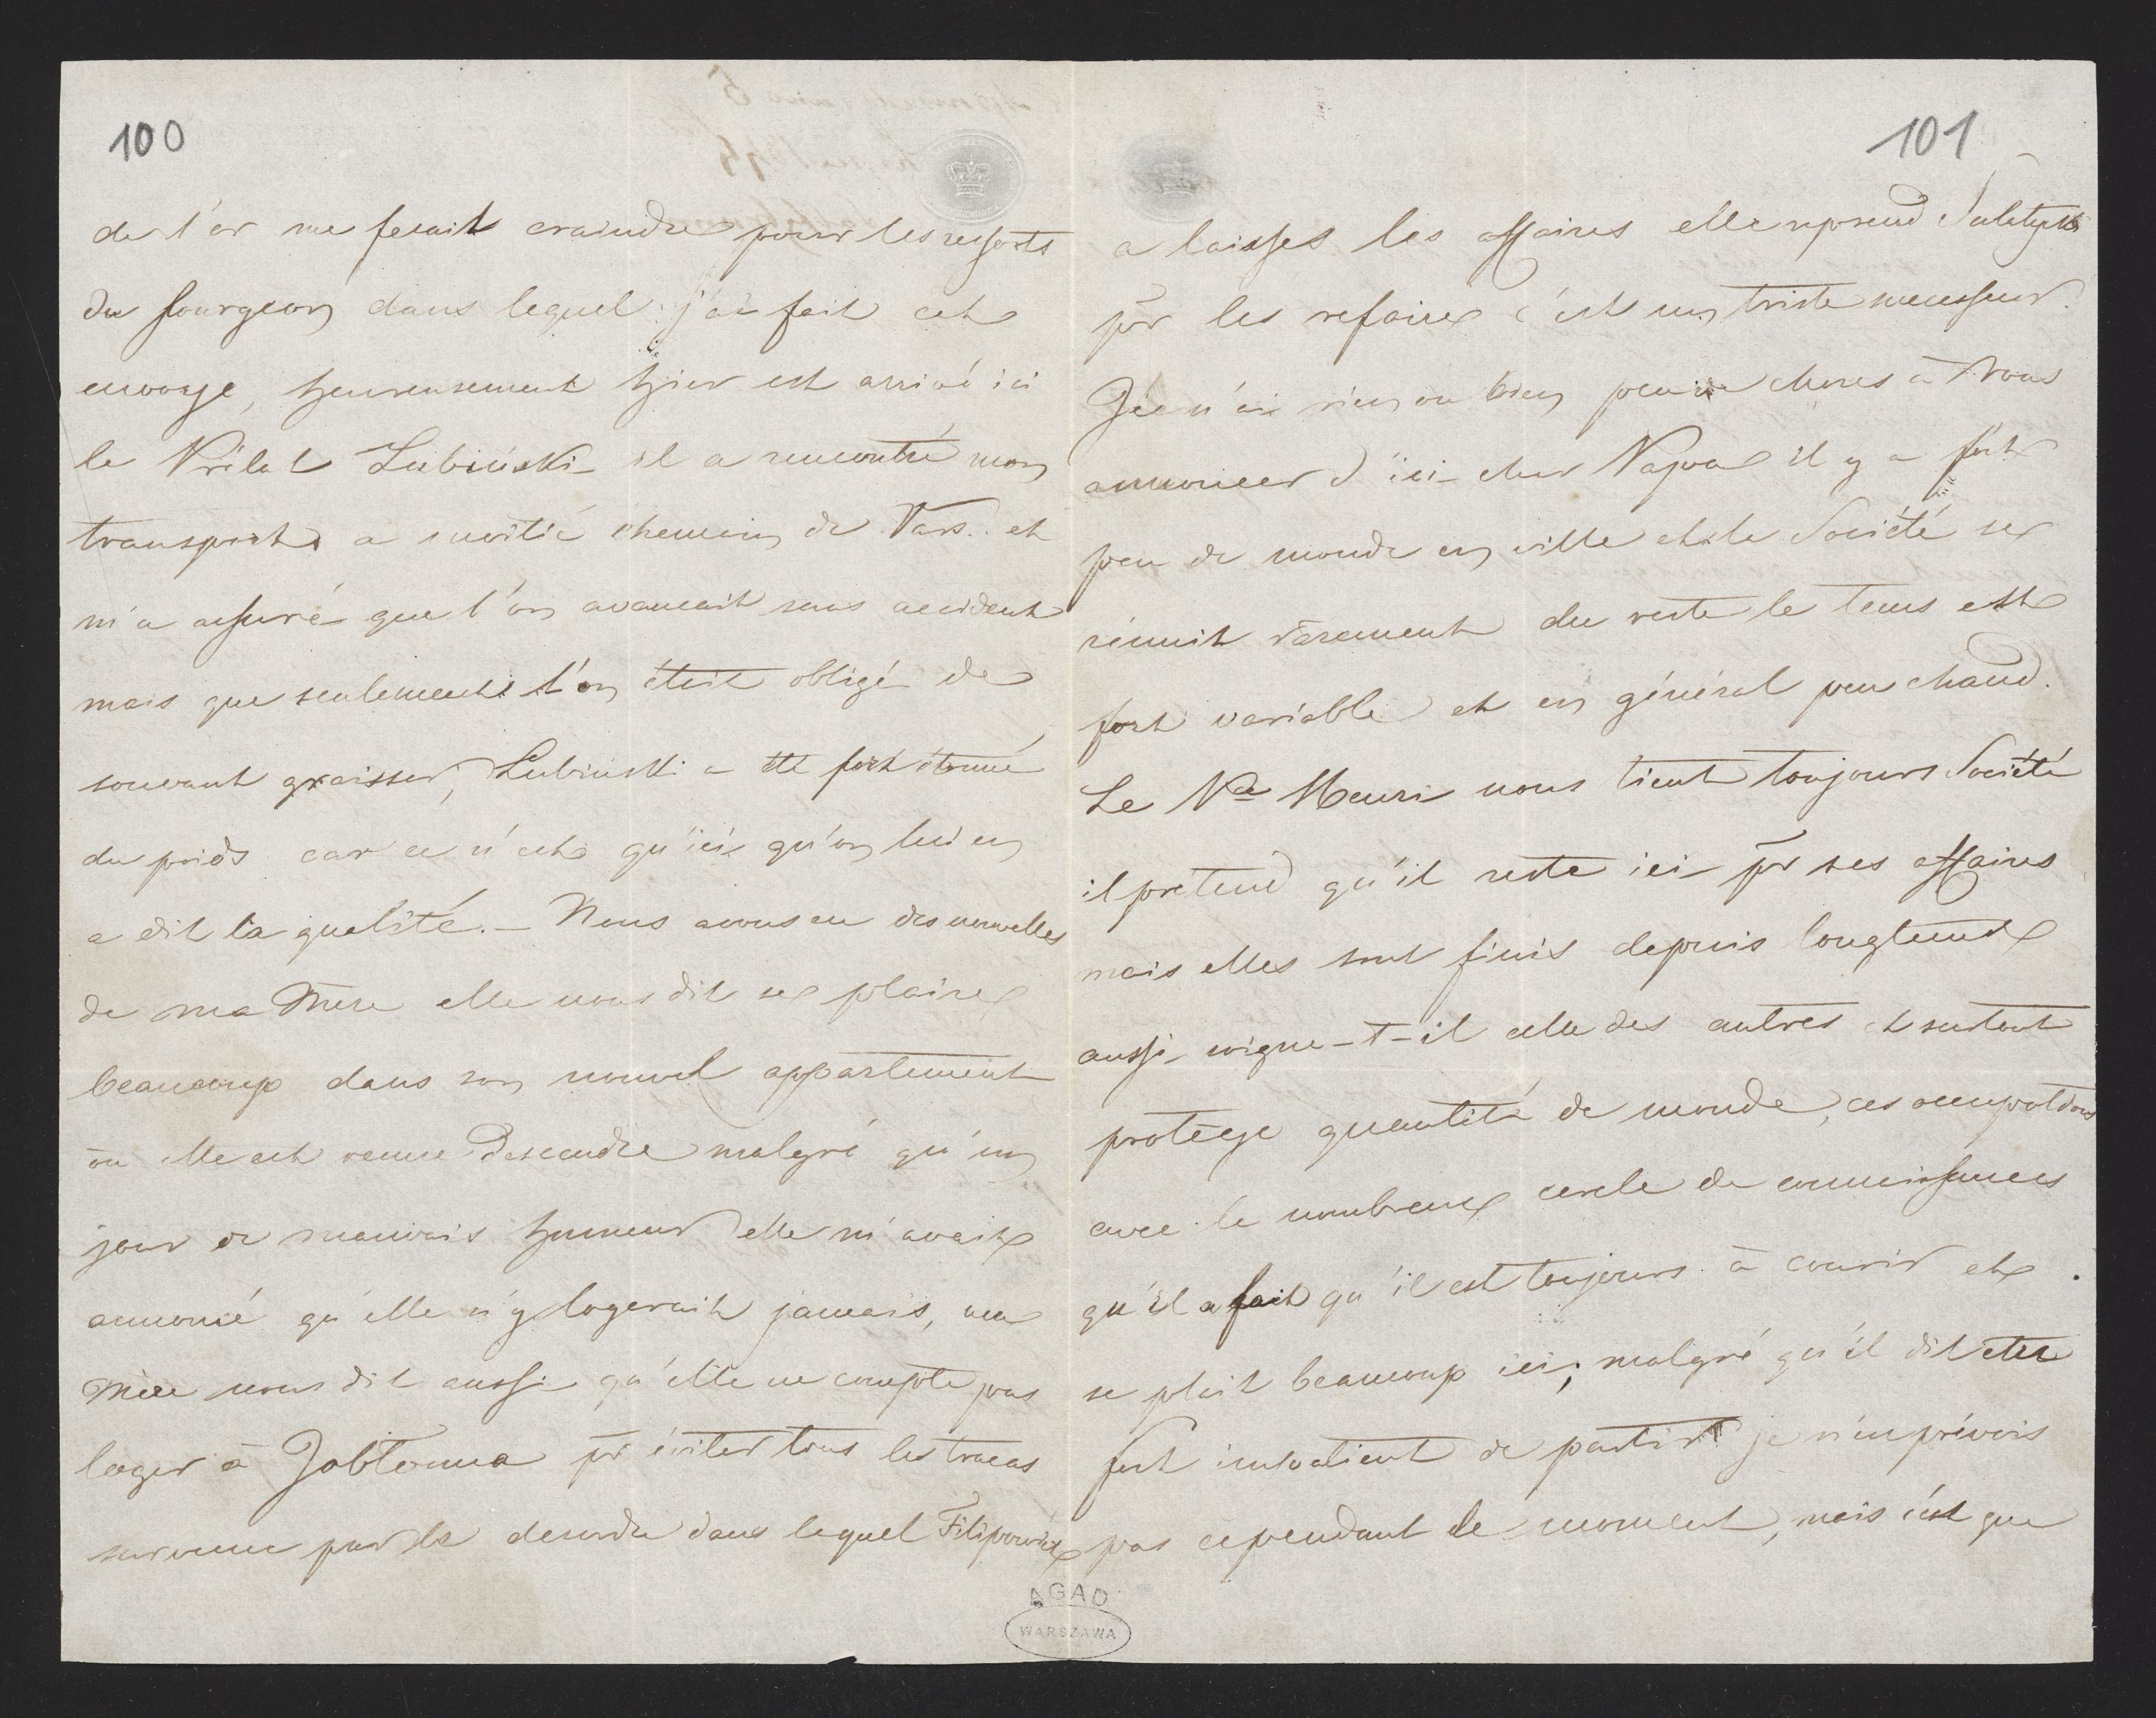 100
de l'or me fesait craindre pour les ressorts
du fourgeon dans lequel j'ai fait cet
envoye, heureusement hier est arrivé ici
le Prélat Lubiński il a rencontré mon
transport a moitié chemin de Vars. et
m'a assuré que l'on avancait sans accident
mais que seulement l'on était obligé de
souvant graisser, Lubiński a été fort étonné
du poids car ce n'est qu'ici qu'on lui en
a dit la qualité. – Nous avons eu des nouvelles
de ma Mere elle nous dit se plaire
beaucoup dans son nouvel appartement
ou elle est venue Descendre malgré qu'un
jour de mauvais humeur elle m'avait
annoncé qu'elle n'y logerait jamais, ma
Mère nous dit aussi qu'elle ne compte pas
loger à Jabłonna pr éviter tous les tracas
survenu par le desordre dans lequel Filipowicz
101
a laisses les affaires elle reprend
pr les refaires c'est un triste successeur.
Je n'ai rien ou bien peu de choses à Vous
annoncer d'ici cher Papa il y a fort
peu de monde en ville et la Société se
réunit rarement du reste le tems est
fort variable et en général peu chaud.
Le Pce Henri nous tient toujours Société
il pretend qu'il reste ici pr ses affaires
mais elles sont finis depuis longtems
aussi soigne-t-il celle des autres et surtout
protège quantité de monde, ces
avec le nombreux cercle de connaissances
qu'il a fait qu'il est toujours à courir et
se plait beaucoup ici; malgré qu'il dit etre
fort impatient de partir je n'en prévois
pas cependant le moment, mais c'est que
AGAD
WARSZAWA